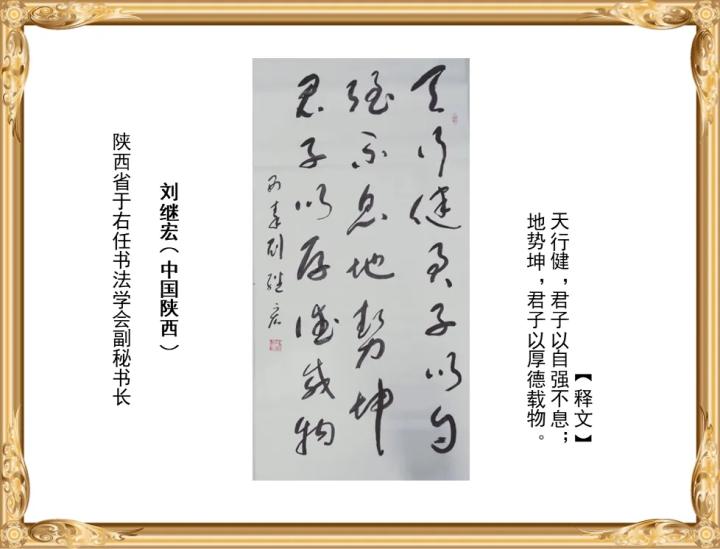 【释文】
天行健，君子以自强不息；
地势坤，君子以厚德载物。
天行健君子以自
强不息地势坤
君子以厚德载物
刘继宏
刘继宏（中国陕西）
陕西省于右任书法学会副秘书长